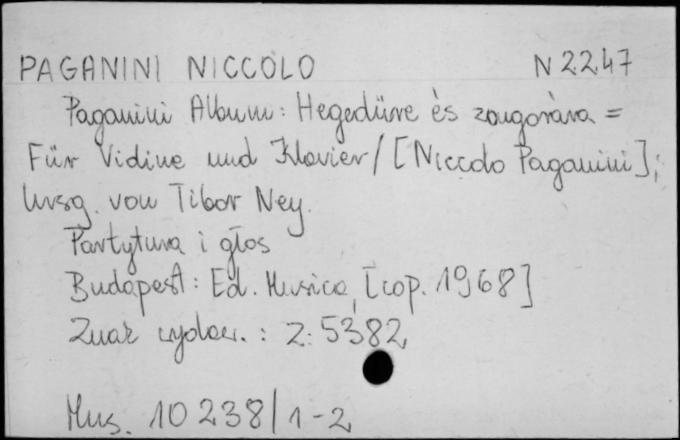 PAGANINI NICCOLO N 2247
Paganini Album: Hegedüre és zongoràra =
Für Vidine und Klavier / [Niccolo Paganini];
hrsg. von Tibor Ney.
Partytura i głos
Budapest: Ed. Musica, [cop. 1968]
Znak wydaw. : Z: 5382
Mus. 10 238/1-2